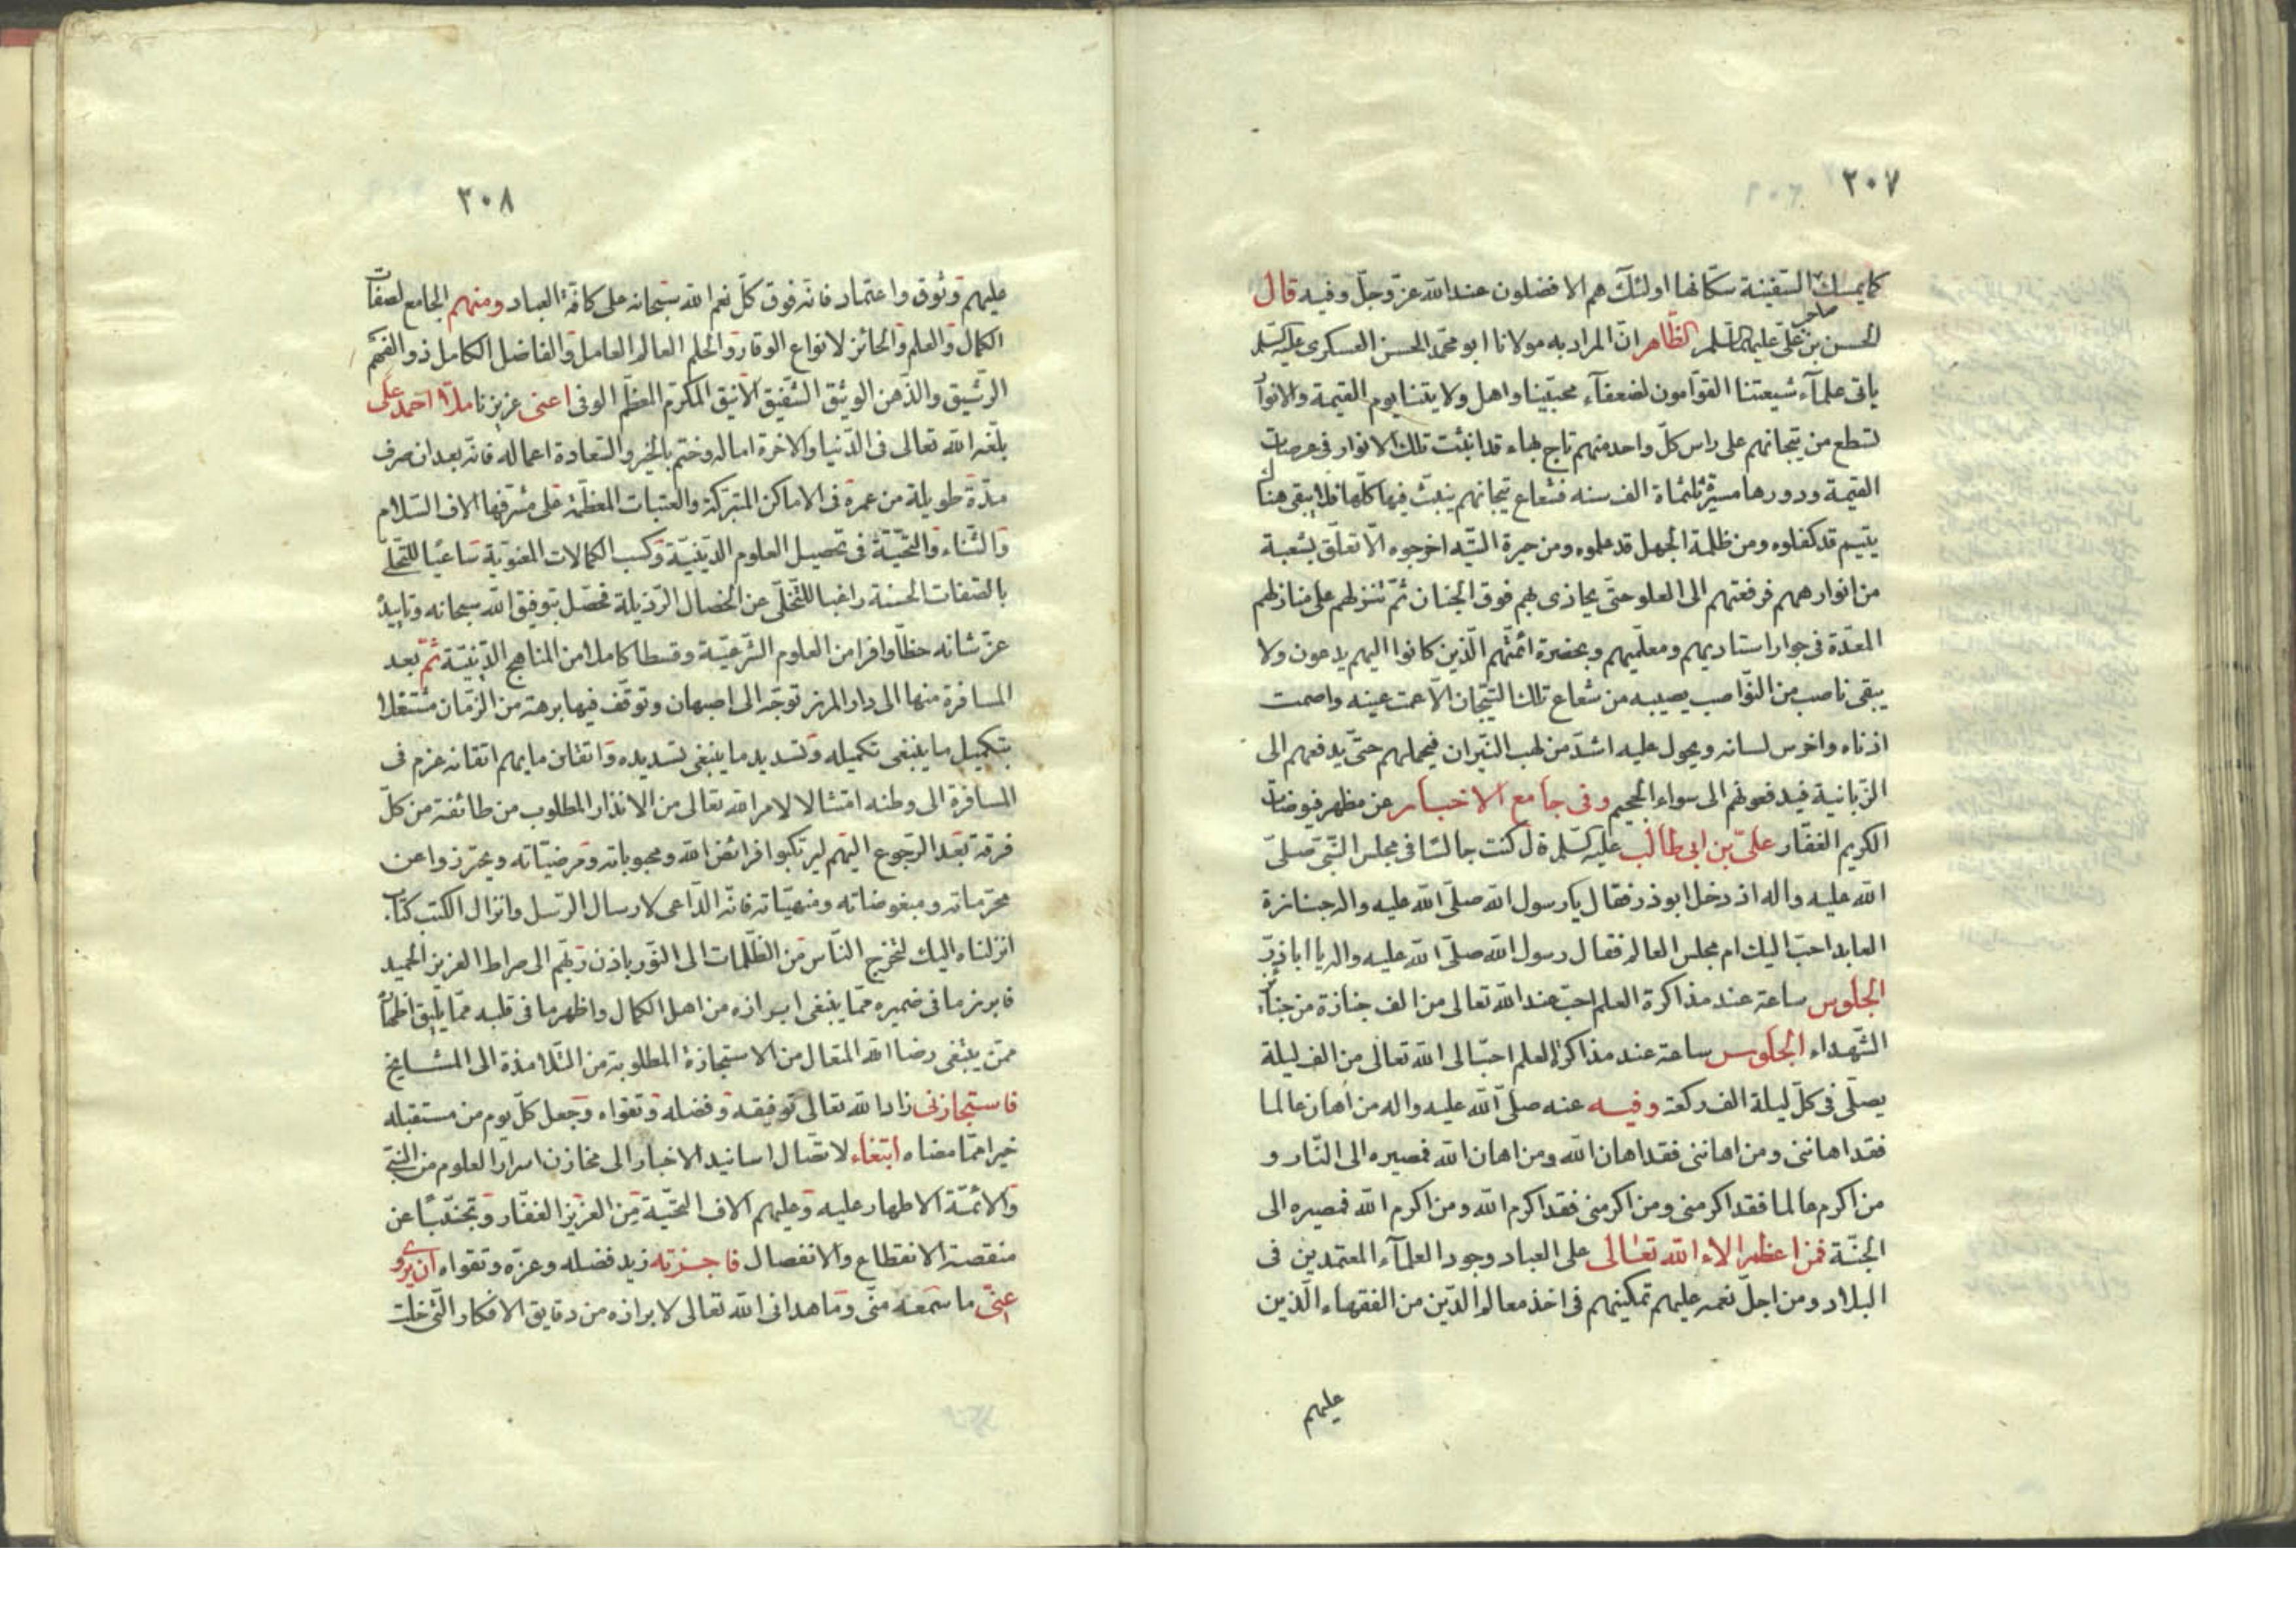 ٢٠٧
كما يمسك السفينة سكّانها اولئك هم الافضلون عند الله عزّ وجلّ وفيه قال
الحسن بن علىّ عليهما السّلم الظّاهر انّ المراد به مولانا ابو محمّد الحسن العسكرى عليه السّلم
ياتى علمآء شيعتنا القوّامون لضعفآء محبّينا واهل ولايتنا يوم القيمة والانوار
تسطع من تيجانهم على راس كلّ واحد منهم تاج بهاء قد انبثت تلك الانوار فى عرصات
القيمة ودورها مسيرة ثلثماة الف سنه فشعاع تيجانهم ينبثّ فيها كلّها فلا يبقى هناك
يتيم قد كفلوه ومن ظلمة الجهل قد علموه ومن حيرة التيه اخرجوه الّا تعلّق بشعبة
من انوارهم فرفعتهم الى العلو حتّى يحاذى بهم فوق الجنان ثمّ تنزلهم على منازلهم
المعدّة فى جوار استاديهم ومعلّميهم وبحضرة ائمّتهم الّذين كانوا اليهم يدعون ولا
يبقى ناصب من النّواصب يصيبه من شعاع تلك التّيجان الّا عمت عينه واصمت
اذناه واخرس لسانه ويحول عليه اشدّ من لهب النّيران فيحملهم حتّى يدفعهم الى
الزّبانية فيدفعونهم الى سواء الجحيم وفى جامع الاخبار عن مظهر فيوضات
الكريم الغفّار علىّ بن ابى طالب عليه السّلم قال كنت جالسًا فى مجلس النّبى صلّى
الله عليه واله اذ دخل ابوذر فقال يا رسول الله صلّى الله عليه واله جنازة
العابد احبّ اليك ام مجلس العالم فقال رسول الله صلّى الله عليه واله يا اباذرّ
الجلوس ساعة عند مذاكرة العلم احبّ عند الله تعالى من الف جنازة من جنائز
الشّهداء الجلوس ساعة عند مذاكرة العلم احبّ الى الله تعالى من الف ليلة
يصلّى فى كلّ ليلة الف ركعة وفيه عنه صلّى الله عليه واله من اهان عالما
فقد اهاننى ومن اهاننى فقد اهان الله ومن اهان الله فمصيره الى النّار و
من اكرم عالما فقد اكرمنى ومن اكرمنى فقد اكرم الله ومن اكرم الله فمصيره الى
الجنّة فمن اعظم الاء الله تعالى على العباد وجود العلمآء المعتمدين فى
البلاد ومن اجلّ نعمه عليهم تمكينهم فى اخذ معالم الدّين من الفقهاء الّذين
عليهم
٢٠٨
عليهم وثوق واعتماد فانّه فوق كلّ نعم الله سبحانه على كافّة العباد ومنهم الجامع لصفات
الكمال والعلم والحائز لانواع الوقار والحلم العالم العامل والفاضل الكامل ذو الفهم
الرّشيق والذّهن الوثيق الشّفيق الانيق المكرّم المعظّم الوفى اعنى عزيزنا ملّا احمد على
بلّغه الله تعالى فى الدّنيا والاخرة اماله وختم بالخير والسّعادة اعماله فانّه بعد ان صرف
مدّة طويلة من عمره فى الاماكن المتبرّكة والعتبات المعظّمة على مشرّفها الاف السّلام
والثّناء والتّحيّة فى تحصيل العلوم الدّينيّة وكسب الكمالات المعنويّة ساعيًا للتّحلّى
بالصّفات الحسنة راغبا للتّخلّى عن الخصال الرّذيلة فحصّل بتوفيق الله سبحانه وتاييده
عزّ شانه حظّا وافرا من العلوم الشّرعيّة وقسطا كاملا من المناهج الدّينيّة ثمّ بعد
المسافرة منها الى دار المرز توجّه الى اصبهان وتوقّف فيها برهة من الزّمان مشتغلا
بتكميل ما ينبغى تكميله وتسديد ما ينبغى تسديده واتقان ما يهم اتقانه عزم فى
المسافرة الى وطنه امتثالا لامر الله تعالى من الانذار المطلوب من طائفة من كلّ
فرقة بعد الرّجوع اليهم ليرتكبوا فرائض الله ومحبوباته ومرضيّاته ويحترزوا عن
محرّماته ومبغوضاته ومنهيّاته فانّه الدّاعى لارسال الرّسل وانزال الكتب كتاب
انزلناه اليك لتخرج النّاس من الظّلمات الى النّور باذن ربّهم الى صراط العزيز الحميد
فابرز ما فى ضميره ممّا ينبغى ابرازه من اهل الكمال واظهر ما فى قلبه ممّا يليق اظهاره
ممّن يبتغى رضا الله المتعال من الاستجازة المطلوبة من التّلامذة الى المشايخ
فاستجازنى زاد الله تعالى توفيقه وفضله وتقواه وجعل كلّ يوم من مستقبله
خيرا ممّا مضاه ابتغاء لاتصال اسانيد الاخبار الى مخازن اسرار العلوم من النّبى
والائمّة الاطهار عليه وعليهم الاف التّحيّة من العزيز الغفّار وتجنّبًا عن
منقصة الانقطاع والانفصال فاجزته زيد فضله وعزّه وتقواه ان يروى
عنّى ما سمعه منّى وما هدانى الله تعالى لابرازه من دقايق الافكار الّتى خلت